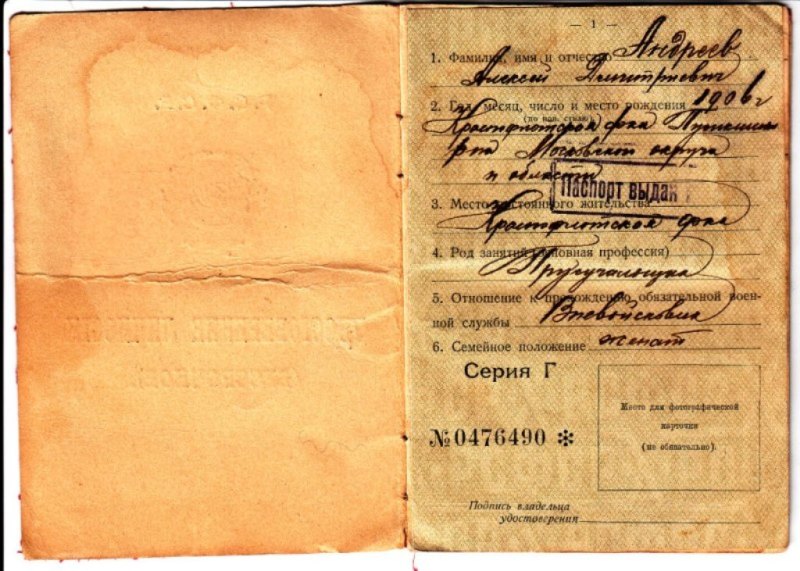 — 1 —
1. Фамилия, имя и отчество Андреев
Алексей Дмитриевич
2. Год, месяц, число и место рождения 1906 г
(по нов. стилю)
Краснофлотской ф-ка Пушкинск
р на Московской округа
и области
Паспорт выдан
3. Место постоянного жительства
Краснофлотской ф-ка
4. Род занятий (основная профессия)
5. Отношение к прохождению обязательной воен-
ной службы Вневойсковик
6. Семейное положение женат
Серия Г
№ 0476490 ✻
Место для фотографической
карточки
(не обязательно).
Подпись владельца
удостоверения